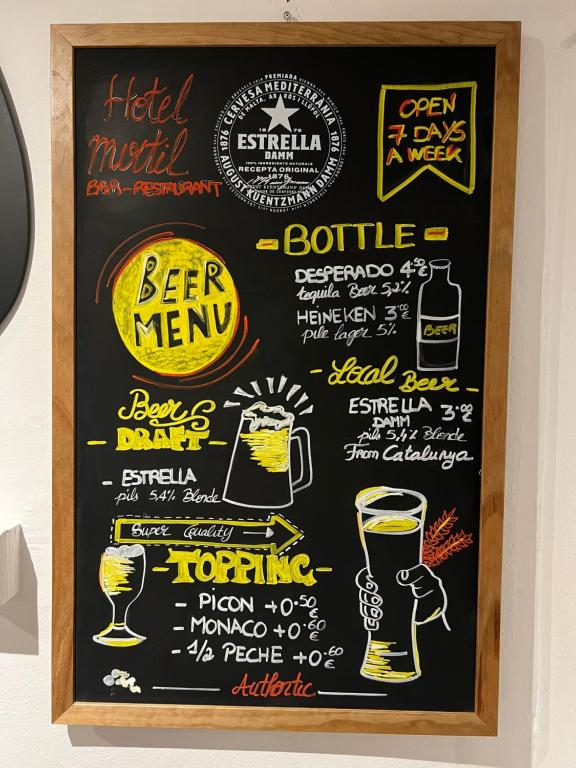 Hotel
Mortil
BAR-RESTAURANT
PREMIADA
CERVESA MEDITERRÀNIA
DE MALTA, ARRÒS I LLÚPOL
1876
1876
18 76
ESTRELLA
DAMM
100% INGREDIENTS NATURALS
RECEPTA ORIGINAL
1876
AUGUST KUENTZMANN DAMM
OPEN
7 DAYS
A WEEK
BEER
MENU
- BOTTLE -
DESPERADO 4.50 €
tequila Beer 5,2%
HEINEKEN 3.00 €
pile lager 5%
BEER
- Local Beer -
ESTRELLA 3.00 €
DAMM
pils 5,4% Blonde
From Catalunya
Beer
- DRAFT -
- ESTRELLA
pils 5,4% Blonde
Super Quality
- TOPPING -
- PICON +0.50 €
- MONACO +0.60 €
- 1/2 PECHE +0.60 €
Authentic